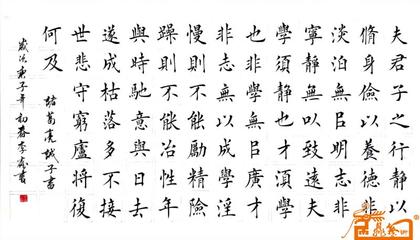 夫君子之行靜以
脩身儉以養德非
淡泊無㠯明志非
寧靜無以致遠夫
學須靜也才須學
也非學無㠯廣才
非志無以成學淫
慢則不能勵精險
躁則不能冶性年
與時馳意與日去
遂成枯落多不接
世悲守窮廬將復
何及 諸葛亮誡子書
歲次庚子年初春李書